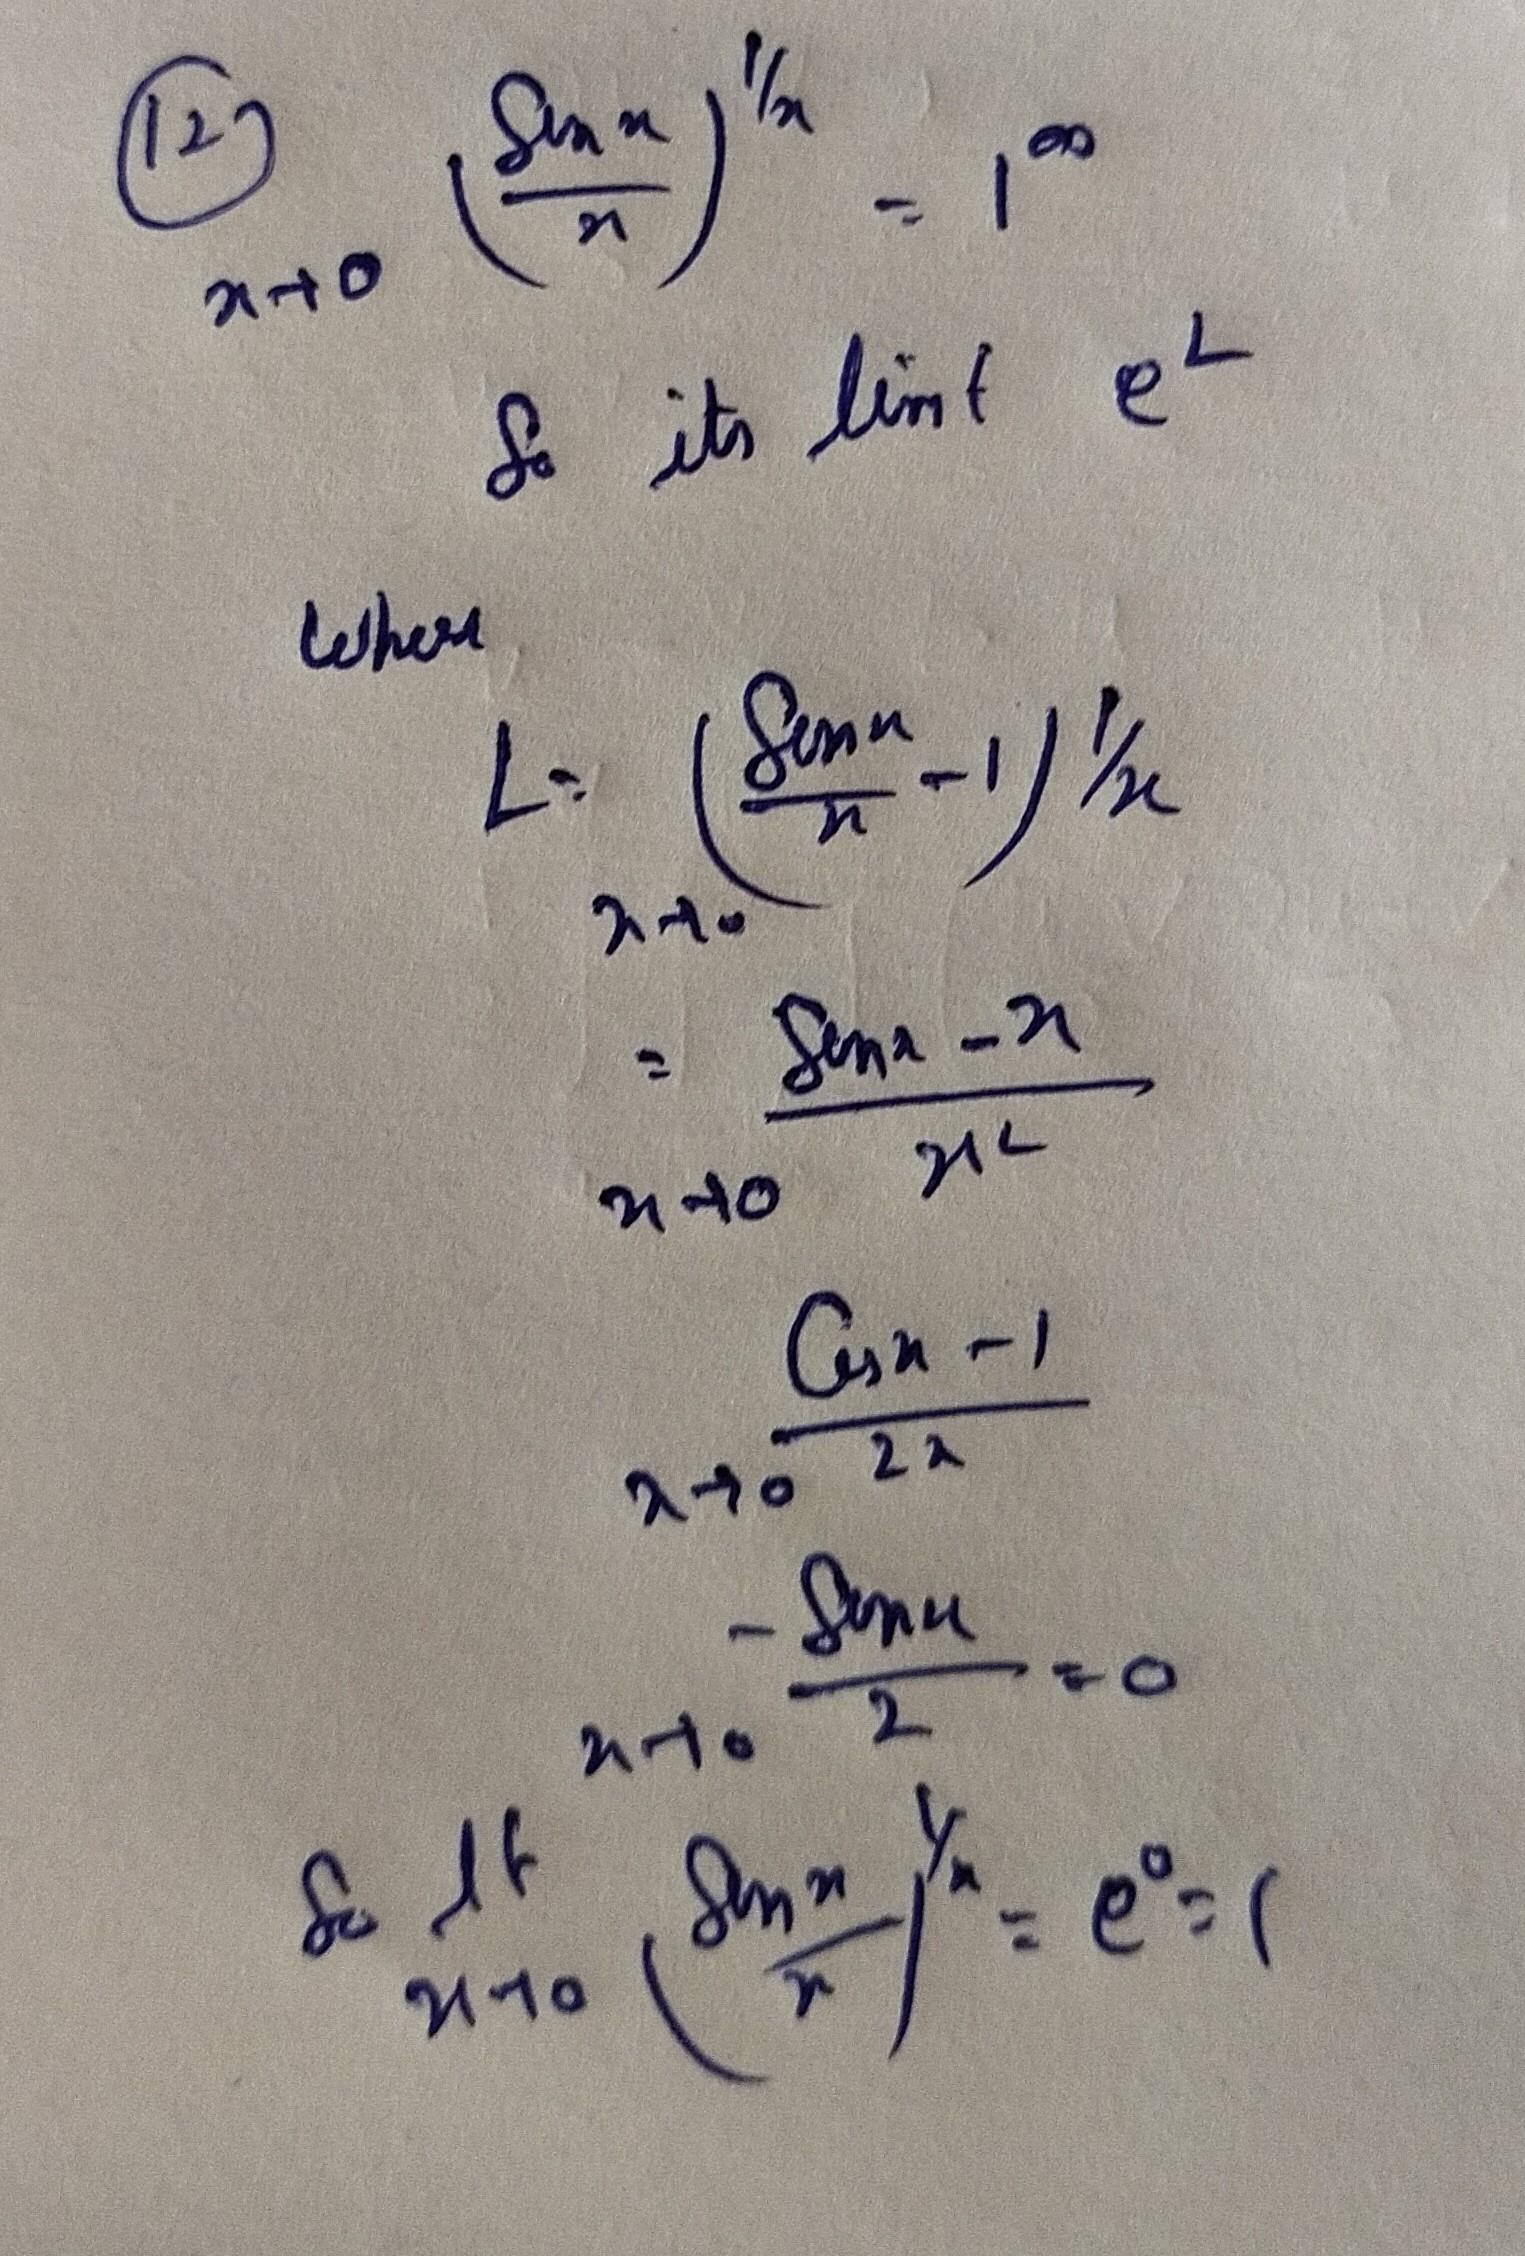 12
x→0 (Sin x / x)^1/x = 1^∞
So its limt e^L
Where
L = x→0 (Sin x / x - 1) 1/x
= x→0 Sin x - x / x²
x→0 Cos x - 1 / 2x
x→0 - Sin x / 2 = 0
So lt x→0 (Sin x / x)^1/x = e⁰ = 1